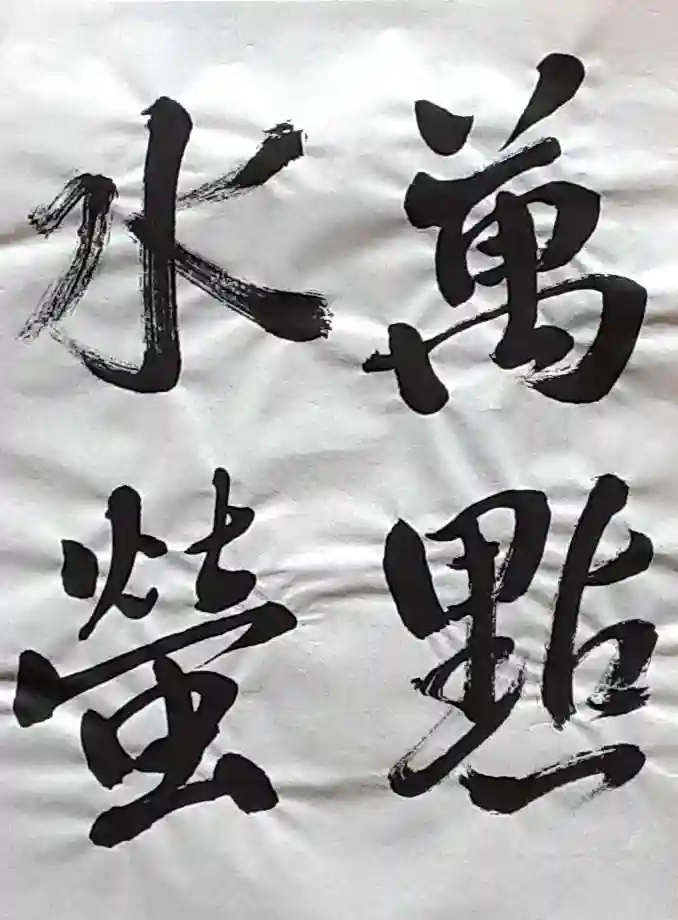 萬點
水螢